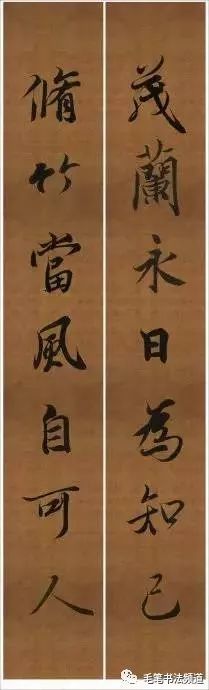 茂蘭永日為知己
脩竹當風自可人
毛笔书法频道